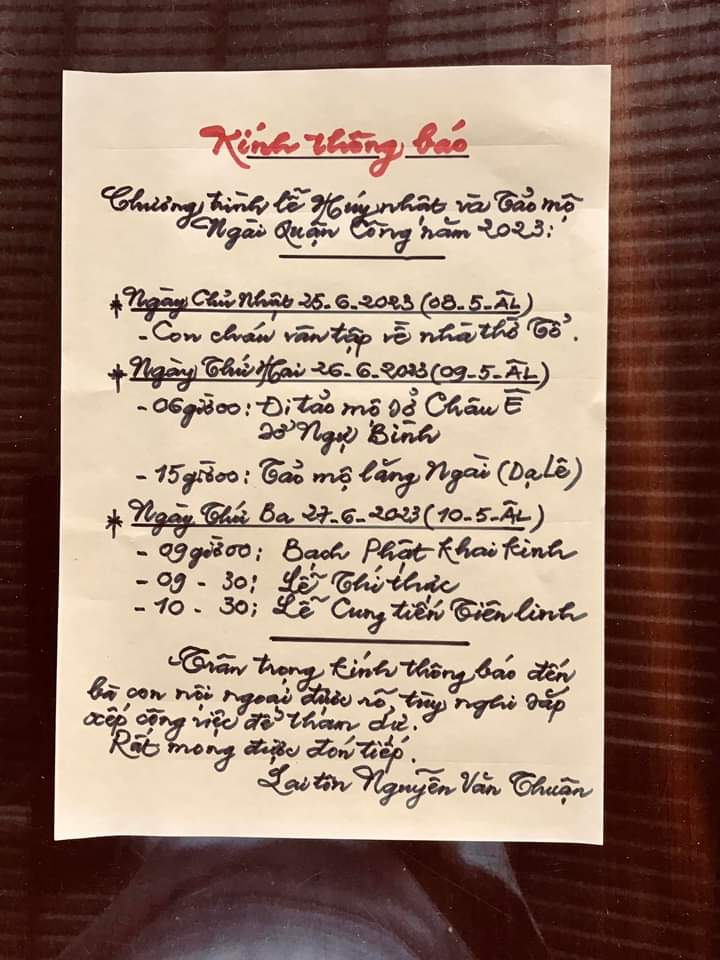 Kính thông báo
Chương trình lễ Húy nhật và Tảo mộ
Ngài Quận Công năm 2023:
* Ngày Chủ Nhật 25-6-2023 (08-5-ÂL)
- Con cháu vân tập về nhà thờ Tổ.
* Ngày Thứ Hai 26-6-2023 (09-5-ÂL)
- 06giờ00: Đi tảo mộ sở Châu Ê
sở Ngự Bình
- 15giờ00: Tảo mộ lăng Ngài (Dạ Lê)
* Ngày Thứ Ba 27-6-2023 (10-5-ÂL)
- 09giờ00: Bạch Phật khai kinh
- 09 - 30; Lễ Thí thực
- 10 - 30; Lễ Cung tiến Tiên linh
- Trân trọng kính thông báo đến
bà con nội ngoại được rõ, tùy nghi sắp
xếp công việc để tham dự.
Rất mong được đón tiếp.
Lai tôn Nguyễn Văn Thuận